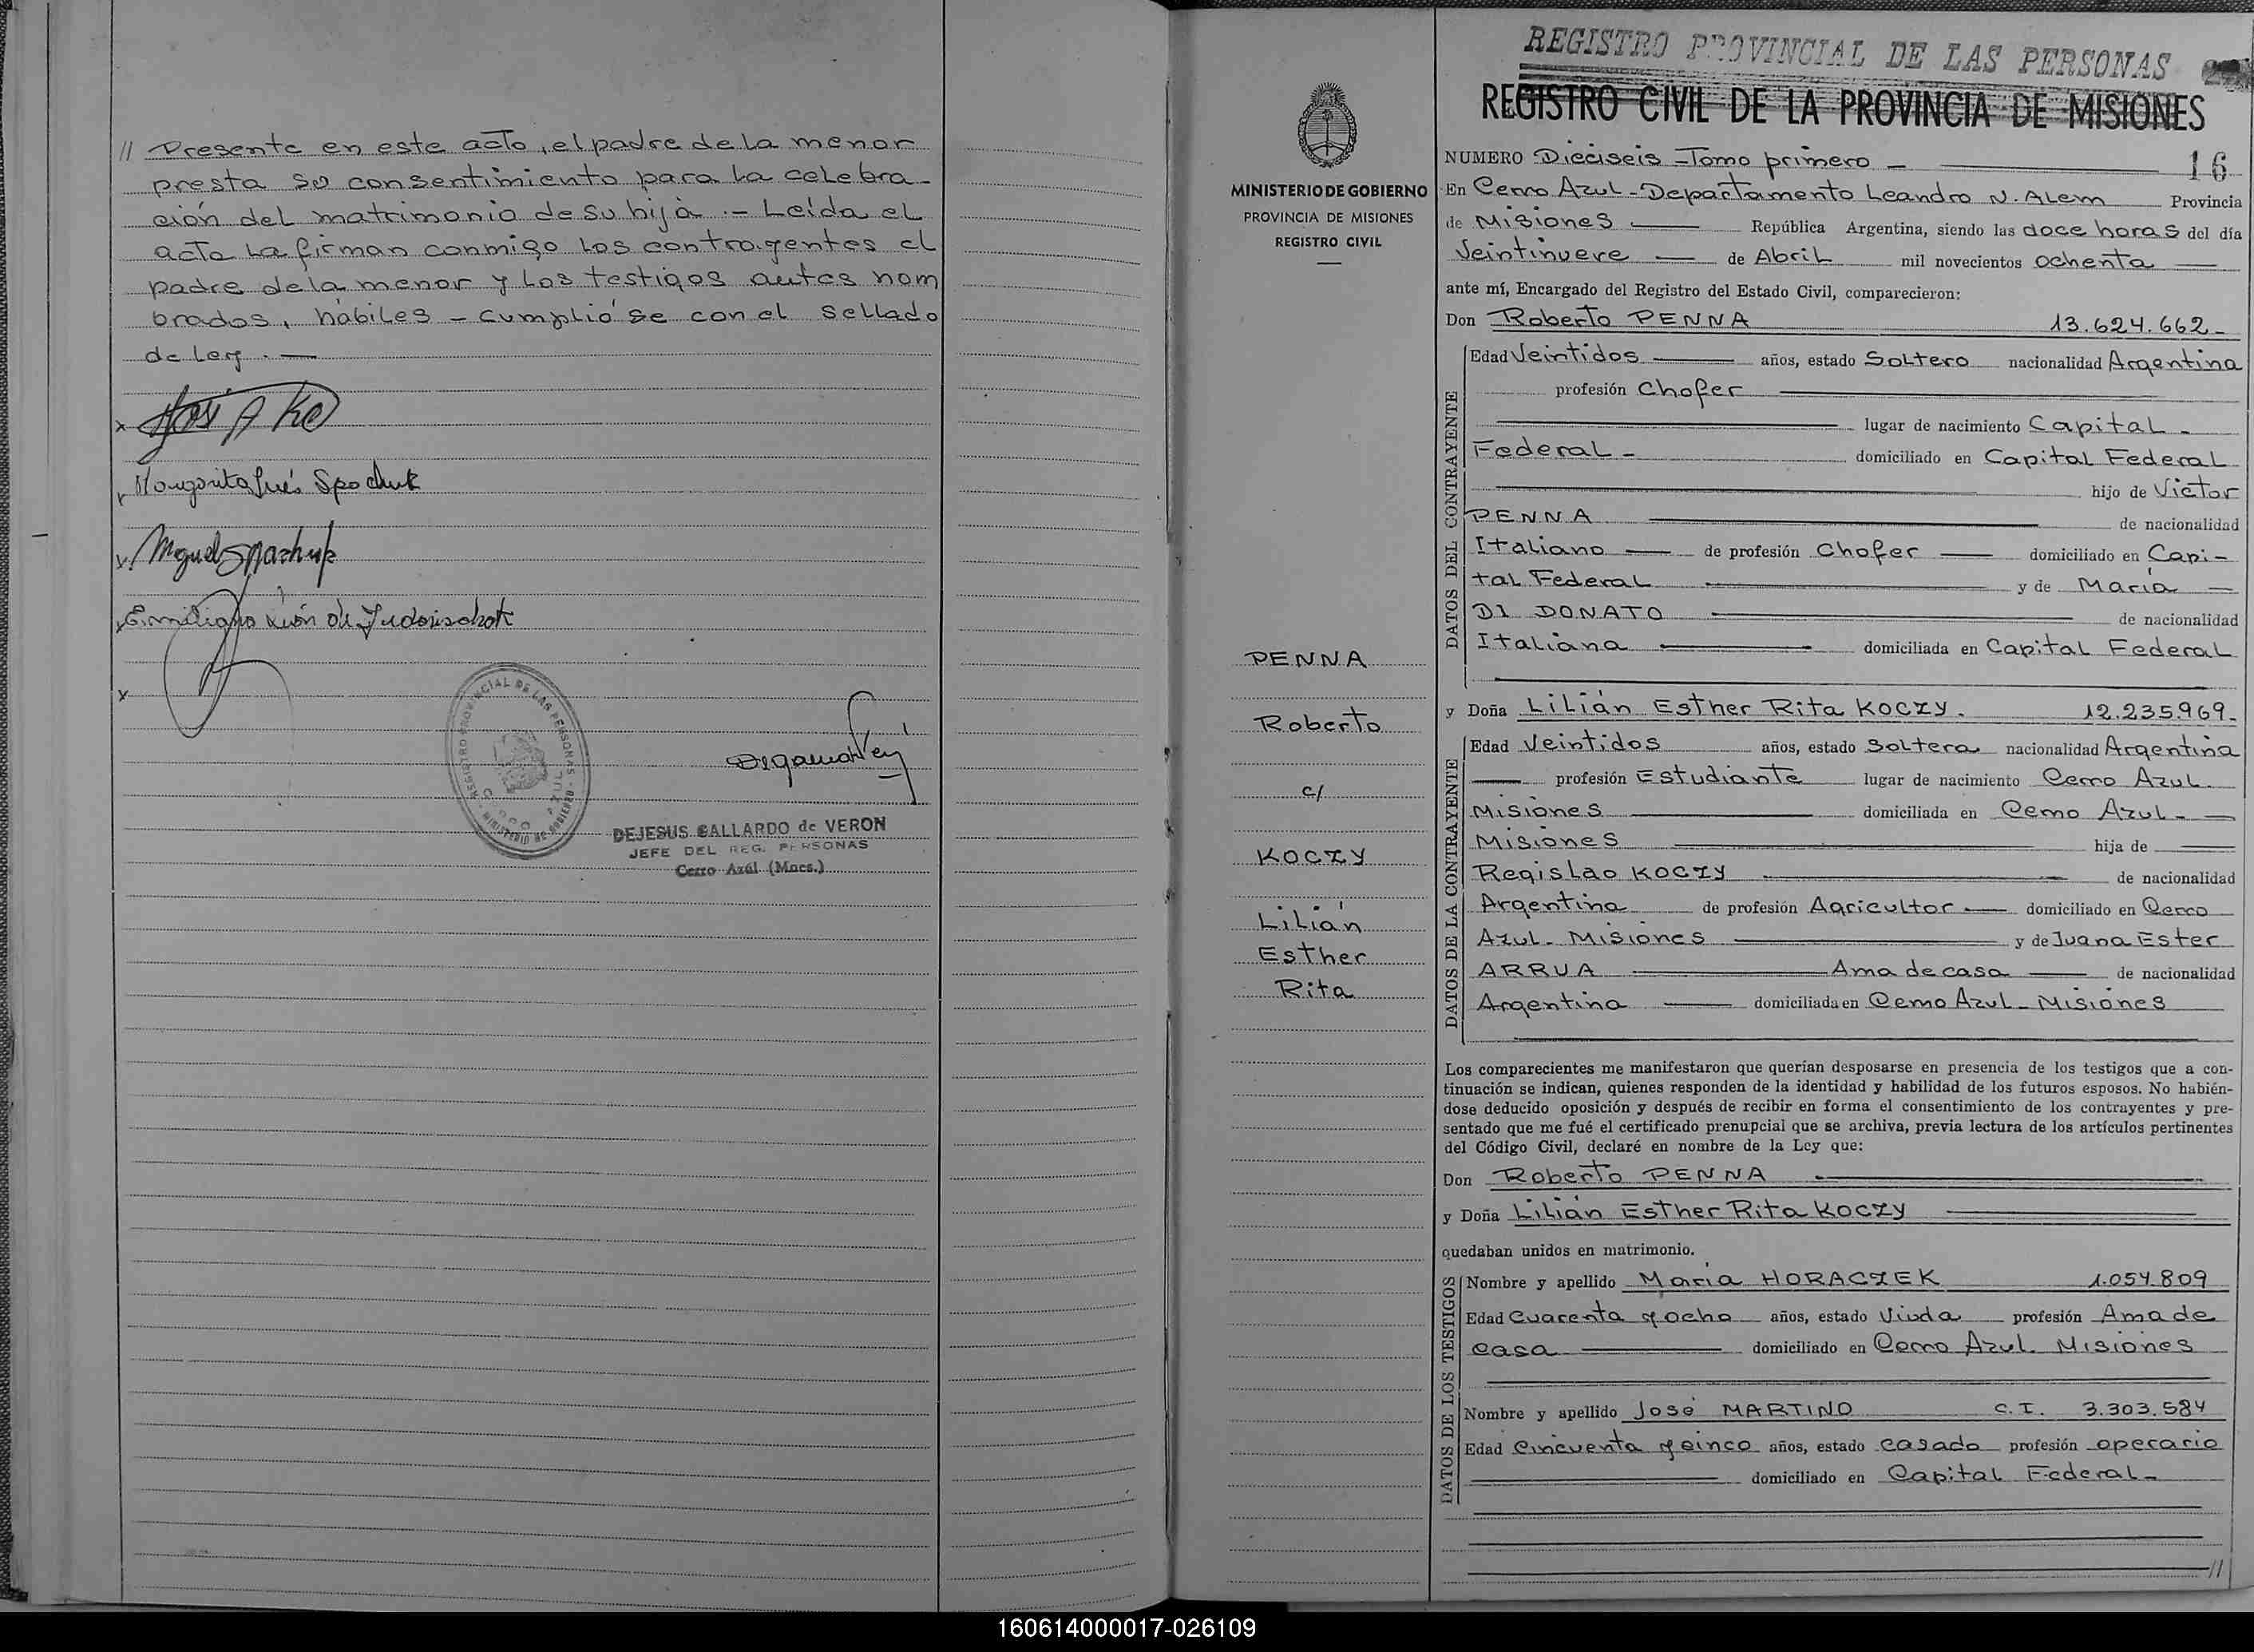 // Presente en este acto, el padre de la menor
presta su consentimiento para la celebra-
ción del matrimonio de su hija .- Leída el
acta la firman conmigo los contrayentes el
padre de la menor y los testigos antes nom
brados, hábiles - cumplióse con el sellado
de ley . —
x
Margarita Inés Spachuk
x Miguel Spachuk
x
x
REGISTRO PROVINCIAL DE LAS PERSONAS
DEJESUS GALLARDO de VERON
JEFE DEL REG. PERSONAS
Cerro Azúl (Mnes.)
MINISTERIO DE GOBIERNO
PROVINCIA DE MISIONES
REGISTRO CIVIL
PENNA
Roberto
c/
KOCZY
Lilián
Esther
Rita
REGISTRO PROVINCIAL DE LAS PERSONAS
REGISTRO CIVIL DE LA PROVINCIA DE MISIONES
NUMERO Dieciseis - Tomo primero — 16
En Cerro Azul - Departamento Leandro N. Alem Provincia
de Misiones — República Argentina, siendo las doce horas del día
Veintinueve — de Abril mil novecientos ochenta —
ante mí, Encargado del Registro del Estado Civil, comparecieron:
Don Roberto PENNA 13.624.662-
DATOS DEL CONTRAYENTE
Edad Veintidos — años, estado Soltero nacionalidad Argentina
profesión Chofer —
— lugar de nacimiento Capital -
Federal - domiciliado en Capital Federal
— hijo de Victor
PENNA — de nacionalidad
Italiano — de profesión Chofer — domiciliado en Capi-
tal Federal — y de María —
DI DONATO — de nacionalidad
Italiana — domiciliada en Capital Federal
y Doña Lilián Esther Rita KOCZY. 12.235.969-
DATOS DE LA CONTRAYENTE
Edad Veintidos años, estado Soltera nacionalidad Argentina
— profesión Estudiante lugar de nacimiento Cerro Azul -
Misiones — domiciliada en Cerro Azul - —
Misiones — hija de —
Regislao KOCZY — de nacionalidad
Argentina de profesión Agricultor — domiciliado en Cerro
Azul - Misiones — y de Juana Ester
ARRUA — Ama de casa — de nacionalidad
Argentina — domiciliada en Cerro Azul - Misiones
Los comparecientes me manifestaron que querían desposarse en presencia de los testigos que a con-
tinuación se indican, quienes responden de la identidad y habilidad de los futuros esposos. No habién-
dose deducido oposición y después de recibir en forma el consentimiento de los contrayentes y pre-
sentado que me fué el certificado prenupcial que se archiva, previa lectura de los artículos pertinentes
del Código Civil, declaré en nombre de la Ley que:
Don Roberto PENNA —
y Doña Lilián Esther Rita KOCZY —
quedaban unidos en matrimonio.
DATOS DE LOS TESTIGOS
Nombre y apellido María HORACZEK 1.054.809
Edad Cuarenta y ocho años, estado Viuda profesión Ama de
casa — domiciliado en Cerro Azul - Misiones
Nombre y apellido José MARTINO C.I. 3.303.584
Edad Cincuenta y cinco años, estado casado profesión operario
— domiciliado en Capital Federal -
//
160614000017-026109